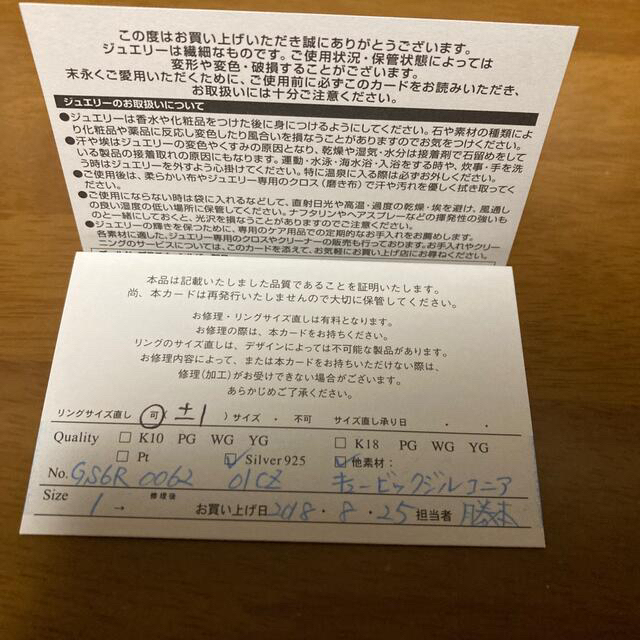 この度はお買い上げいただき誠にありがとうございます。
ジュエリーは繊細なものです。ご使用状況・保管状態によっては
変形や変色・破損することがございます。
末永くご愛用いただくために、ご使用前に必ずこのカードをお読みいただき、
お取扱いには十分ご注意ください。
ジュエリーのお取扱いについて
●ジュエリーは香水や化粧品をつけた後に身につけるようにしてください。石や素材の種類によ
り化粧品や薬品に反応し変色したり風合いを損なうことがありますのでお気をつけください。
●汗や埃はジュエリーの変色やくすみの原因となり、乾燥や湿気・水分は接着剤で石留めをして
いる製品の接着取れの原因にもなります。運動・水泳・海水浴・入浴をする時や、炊事・手を洗
う時はジュエリーを外すよう心掛けてください。特に温泉に入る際は必ずお外しください。
●ご使用後は、柔らかい布やジュエリー専用のクロス(磨き布)で汗や汚れを優しく拭き取ってく
ださい。
●ご使用にならない時は袋に入れるなどして、直射日光や高温・過度の乾燥・埃を避け、風通し
の良い湿度の低い場所に保管してください。ナフタリンやヘアスプレーなどの揮発性の強いも
のと一緒にしておくと、光沢を損なうことがありますのでご注意ください。
●ジュエリーの輝きを保つために、専用のケア用品での定期的なお手入れをお薦めします。
各素材に適した、ジュエリー専用のクロスやクリーナーの販売も行っております。お手入れやクリー
ニングのサービスについては、このカードを添えて、お気軽にお買い上げ店にお尋ねください。
本品は記載いたしました品質であることを証明いたします。
尚、本カードは再発行いたしませんので大切に保管してください。
お修理・リングサイズ直しは有料となります。
お修理の際は、本カードをお持ちください。
リングのサイズ直しは、デザインによっては不可能な製品があります。
お修理内容によって、または本カードをお持ちいただけない際は、
修理(加工)がお受けできない場合がございます。
あらかじめご了承ください。
リングサイズ直し 可 ( ±1 ) サイズ ・ 不可 サイズ直し承り日 ・ ・
Quality □ K10 PG WG YG □ K18 PG WG YG
□ Pt ☑ Silver925 ☑ 他素材:
No. GS6R 0062 01CZ キュービックジルコニア
Size 1 → 修理後 お買い上げ日 2018・8・25 担当者 勝本